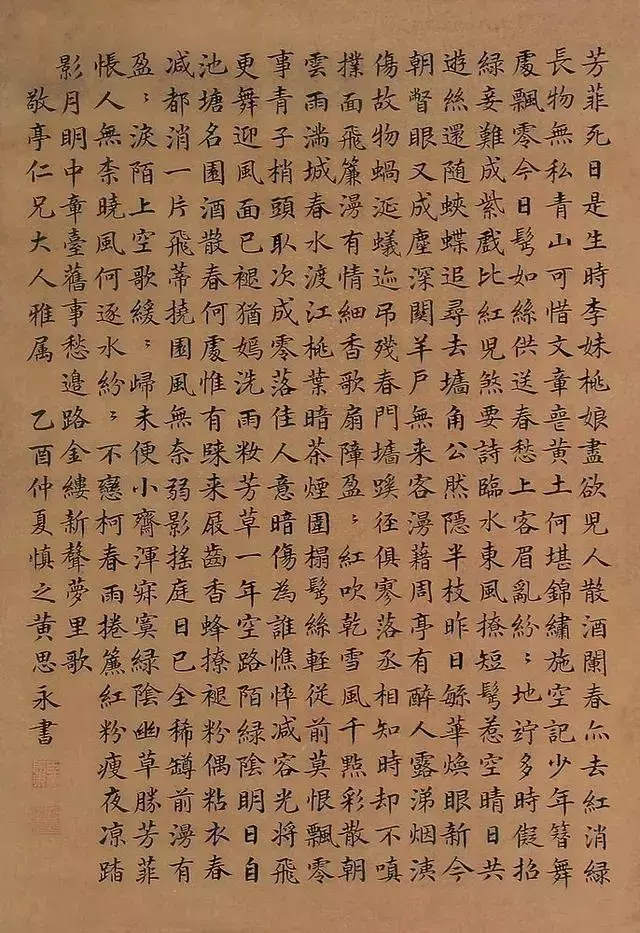 芳菲死日是生時李妹桃娘盡欲兒人散酒闌春亦去紅消綠
長物無私青山可惜文章喪黄土何堪錦繡施空記少年簪舞
處飄零今日髩如絲供送春愁上客眉亂紛〻地竚多時儗招
綠妾難成紫戲比紅兒煞要詩臨水東風撩短髩惹空晴日共
遊絲還随蛺蝶追尋去墻角公然隱半枝昨日緐華煥眼新今
朝瞥眼又成塵深關羊戶無来客漫藉周亭有醉人露涕烟洟
傷故物蝸涎蟻迹吊殘春門墻蹊徑俱寥落丞相知時却不嗔
撲面飛簾漫有情細香歌扇障盈〻紅吹乾雪風千點彩散朝
雲雨満城春水渡江桃葉暗茶煙圍榻髩絲輕従前莫恨飄零
事青子梢頭取次成零落佳人意暗傷為誰憔悴减容光將飛
更舞迎風面已褪猶嫣洗雨妝芳草一年空路陌綠陰明日自
池塘名園酒散春何處惟有睐来屐齒香蜂撩褪粉偶粘衣春
减都消一片飛蒂撓園風無奈弱影搖庭日已全稀罇前漫有
盈〻淚陌上空歌緩〻歸未便小齋渾寂寞綠陰幽草勝芳菲
悵人無柰曉風何逐水紛〻不戀柯春雨捲簾紅粉瘦夜凉踏
影月明中章臺舊事愁邊路金縷新聲夢里歌
敬亭仁兄大人雅属 乙酉仲夏慎之黄思永書